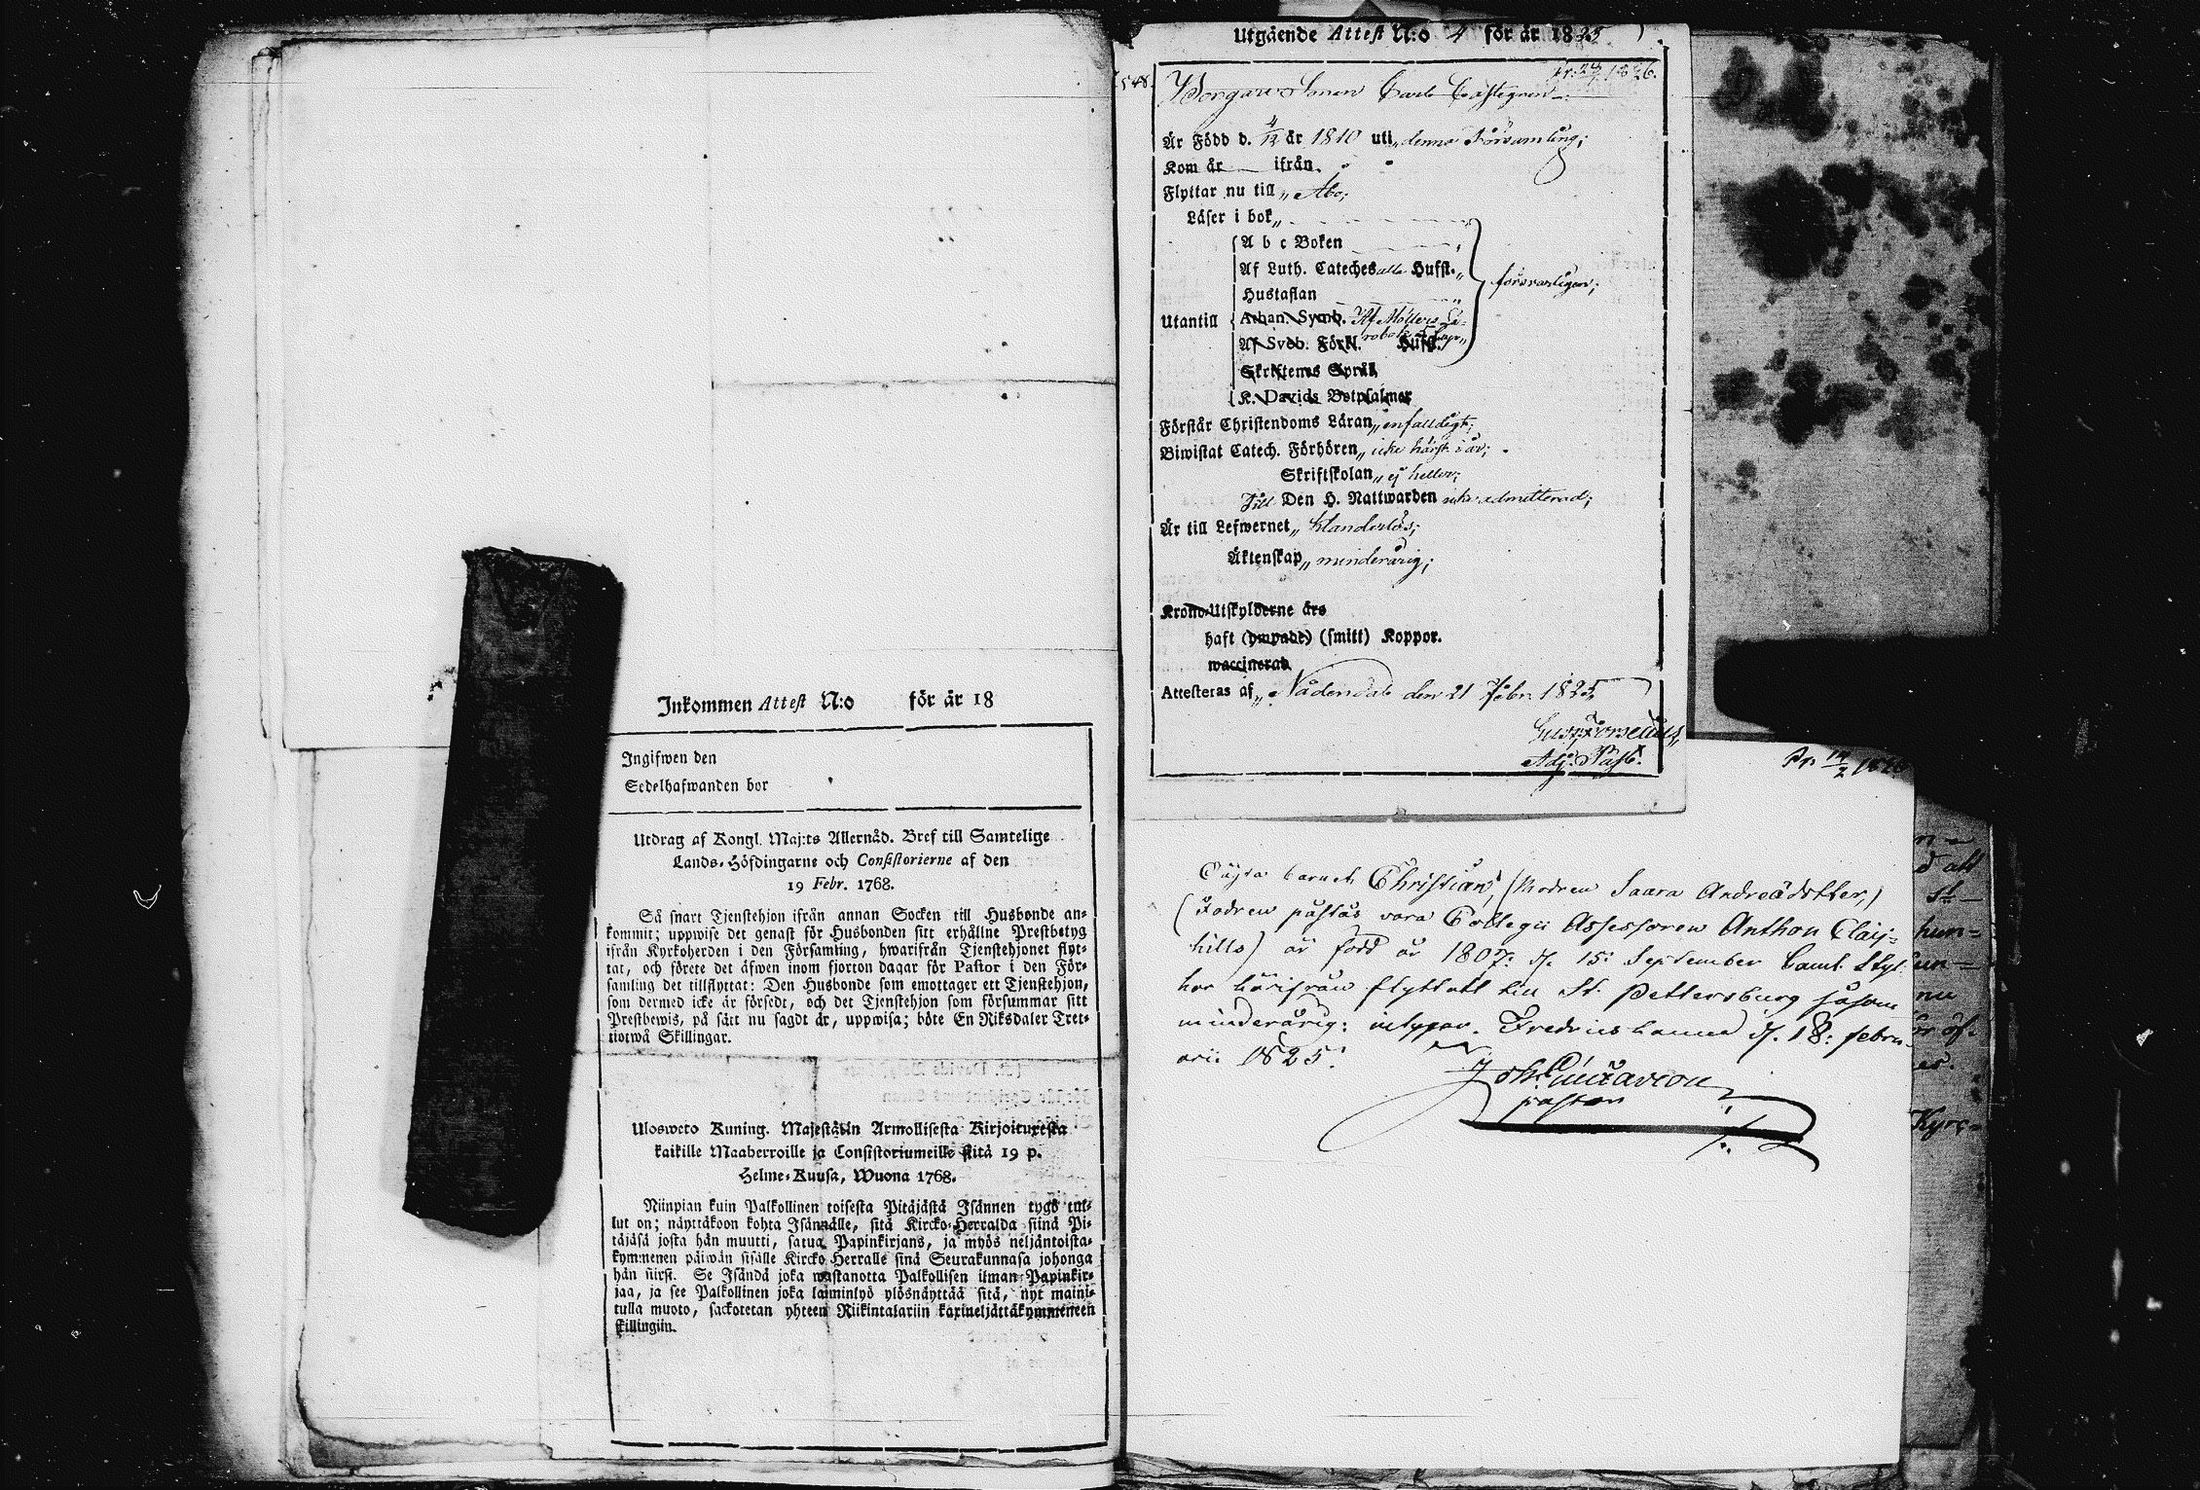 Inkommen Attest N:o för år 18
Ingifwen den
Sedelhafwanden bor
Utdrag af Kongl. Maj:ts Allernåd. Bref till Samtelige
Lands-Höfdingarne och Consistorierne af den
19 Febr. 1768.
Så snart Tjenstehjon ifrån annan Socken till Husbonde an-
kommit; uppwise det genast för Husbonden sitt erhållne Prestbetyg
ifrån Kyrkoherden i den Församling, hwarifrån Tjenstehjonet flyt-
tat, och förete det äfwen inom fjorton dagar för Pastor i den För-
samling det tillflyttat: Den Husbonde som emottager ett Tjenstehjon,
som dermed icke är försedt, och det Tjenstehjon som försummar sitt
Prestbewis, på sätt nu sagdt är, uppwisa; böte En Riksdaler Tret-
tiotwå Skillingar.
Ulosweto Kuning. Majestätin Armollisesta Kirjoituxesta
kaikille Maaherroille ja Consistoriumeille siitä 19 p.
Helme-Kuusa, Wuona 1768.
Niinpian kuin Palkollinen toisesta Pitäjästä Isännen tygö tul-
lut on; näyttäköön kohta Isännälle, sitä Kircko-Herralda siinä Pi-
täjäsä josta hän muutti, satua Papinkirjans, ja myös neljäntoista-
kymmenen päiwän sisälle Kircko Herralle sinä Seurakunnasa johonga
hän siirst. Se Isändä joka wastanotta Palkollisen ilman Papinkir-
jaa, ja see Palkollinen joka laiminlyö ylösnäyttää sitä, nyt maini-
tulla muoto, sackotetan yhteen Riikintalariin kaxineljättäkymmeneen
skillingiin.
Utgående Attest N:o 4 för år 1825
548.
Borgare Sonen Carl Castegren
Är Född d. 4/12 år 1810 uti denna Församling;
Kom år ifrån
Flyttar nu till Åbo;
Läser i bok
A b c Boken
Af Luth. Cateches alla Hufst.
försvarligen;
Hustaflan
Utantill
Athan. Symb. Af Möllers Lä-
Af Sveb. Förkl. Hufst.
Skriftenes Språk
K. Davids Botpsalmer
Förstår Christendoms Läran enfalldigt;
Biwistat Catech. Förhören icke härst. i år;
Skriftskolan ej heller;
Till Den H. Nattwarden icke admitterad;
Är till Lefwernet klanderlös;
Äktenskap minderårig;
Krono-Utskylderne års
haft (ympade) (smitt) Koppor.
waccinerad
Attesteras af Nådendal den 21 Febr. 1825
Gust. Forselius
Adj. Past.
Pr. 14/2 1826
barnet Christian, (Modren Saara Andreädotter,)
(Fadren påstås vara Collegii Assessoren Anthon Claij-
hills) är född år 1807. d. 15: September Gaml. Styl.
har härifrån flyttatt till St. Pettersburg såsom
minderårig: intygar. Fredrics hamn d. 18: febru-
arii 1825.
Joh. Gustavson
pastor
d att
St
hun=
un=
nu
Kyrc=